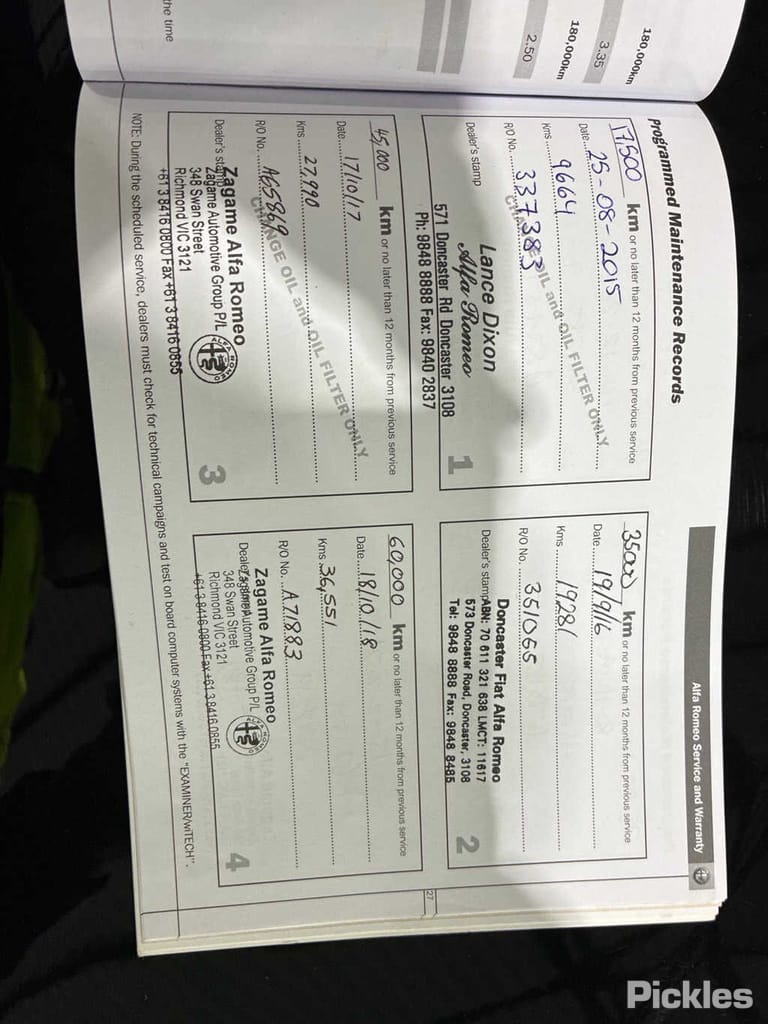 the time
180,000km
3.35
180,000km
2.50
Alfa Romeo Service and Warranty
Programmed Maintenance Records
17,500 km or no later than 12 months from previous service
Date 25-08-2015
Kms 9664
R/O No. 337383
CHANGE OIL and OIL FILTER ONLY
Dealer's stamp
Lance Dixon
Alfa Romeo
571 Doncaster Rd Doncaster 3108
Ph: 9848 8888 Fax: 9840 2837
1
35000 km or no later than 12 months from previous service
Date 19/9/16
Kms 19281
R/O No. 351065
Dealer's stamp
Doncaster Fiat Alfa Romeo
ABN: 70 611 321 638 LMCT: 11617
573 Doncaster Road, Doncaster, 3108
Tel: 9848 8888 Fax: 9848 8485
2
45,000 km or no later than 12 months from previous service
Date 17/10/17
Kms 27,990
R/O No. AG5869
CHANGE OIL and OIL FILTER ONLY
Dealer's stamp
Zagame Alfa Romeo
Zagame Automotive Group P/L
348 Swan Street
Richmond VIC 3121
+61 3 8416 0800 Fax +61 3 8416 0855
ALFA ROMEO
3
60,000 km or no later than 12 months from previous service
Date 18/10/18
Kms 36,551
R/O No. A71883
Dealer's stamp
Zagame Alfa Romeo
Zagame Automotive Group P/L
348 Swan Street
Richmond VIC 3121
+61 3 8416 0800 Fax +61 3 8416 0855
ALFA ROMEO
4
NOTE: During the scheduled service, dealers must check for technical campaigns and test on board computer systems with the "EXAMINER/wiTECH".
27
Pickles